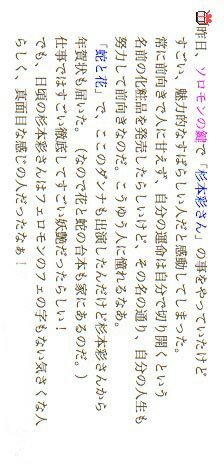 昨日、ソロモンの鍵で「杉本彩さん」の事をやっていたけど
すごい、魅力的なすばらしい人だと感動してしまった。
常に前向きで人に甘えず、自分の運命は自分で切り開くという
名前の化粧品を発売したらしいけど、その名の通り、自分の人生も
努力して前向きなのだ。こうゆう人に憧れるなあ。
「蛇と花」で、ここのダンナも出演したんだけど杉本彩さんから
年賀状も届いた。（なので花と蛇の台本も家にあるのだ。）
仕事ではすごい徹底してすごい妖艶だったらしい！
でも、日頃の杉本彩さんはフェロモンのフェの字もない気さくな人
らしく、真面目な感じの人だったなぁ！